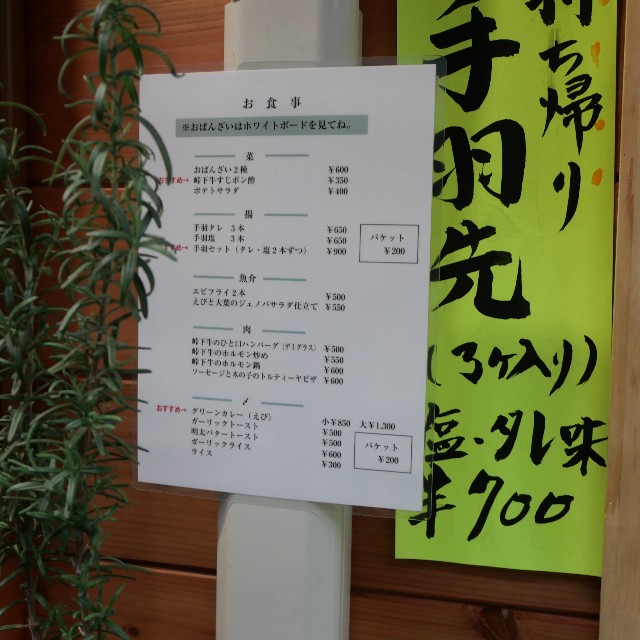 お食事
※おばんざいはホワイトボードを見てね。
菜
おばんざい2種 ¥600
おすすめ→ 峠下牛すじポン酢 ¥350
ポテトサラダ ¥400
揚
手羽タレ 3本 ¥650
手羽塩 3本 ¥650
おすすめ→ 手羽セット（タレ・塩2本ずつ） ¥900
バケット
¥200
魚介
エビフライ2本 ¥500
えびと大葉のジェノバサラダ仕立て ¥550
肉
峠下牛のひと口ハンバーグ（デミグラス） ¥500
峠下牛のホルモン炒め ¥550
峠下牛のホルモン鍋 ¥600
ソーセージと木の子のトルティーヤピザ ¥600
〆
おすすめ→ グリーンカレー（えび） 小¥850 大¥1,300
ガーリックトースト ¥500
明太バタートースト ¥500
ガーリックライス ¥600
ライス ¥300
バケット
¥200
持ち帰り
手羽先
(3ケ入り)
塩・タレ味
¥700